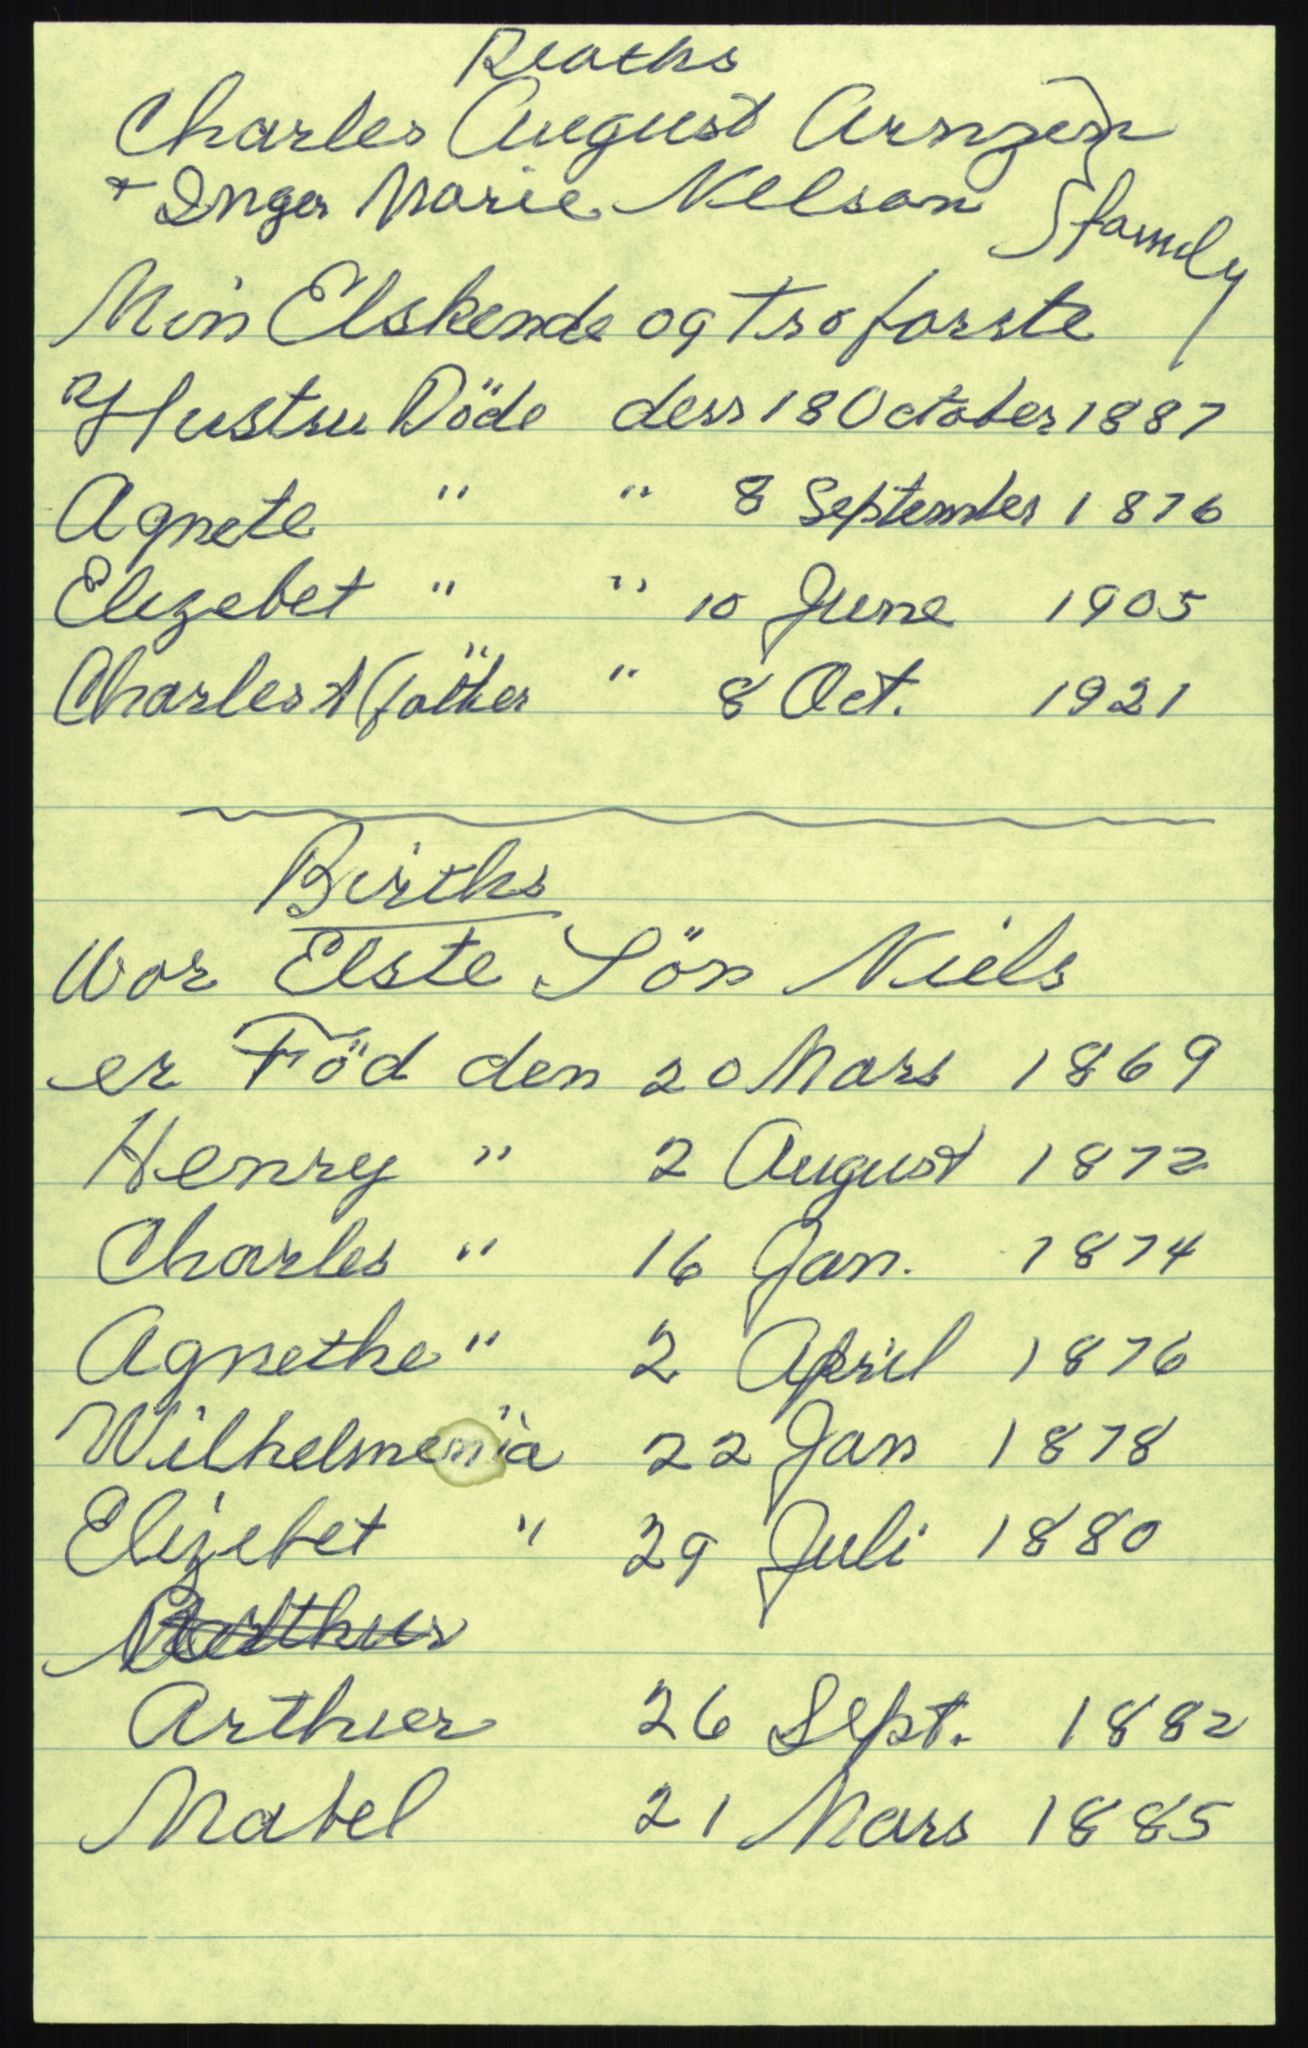 Deaths
Charles August Arnzen
+ Inger Marie Nelson } family
Min Elskende og Troforste
Hustru Döde den 18 October 1887
Agnete " " 8 September 1876
Elizebet " " 10 June 1905
Charles A (father " " 8 Oct. 1921
Births
Wor Elste Sön Niels
er Föd den 20 Mars 1869
Henry " 2 August 1872
Charles " 16 Jan. 1874
Agnethe " 2 April 1876
Wilhelmenia " 22 Jan 1878
Elizebet " 29 Juli 1880
Arthur
Arthuer 26 Sept. 1882
Mabel 21 Mars 1885